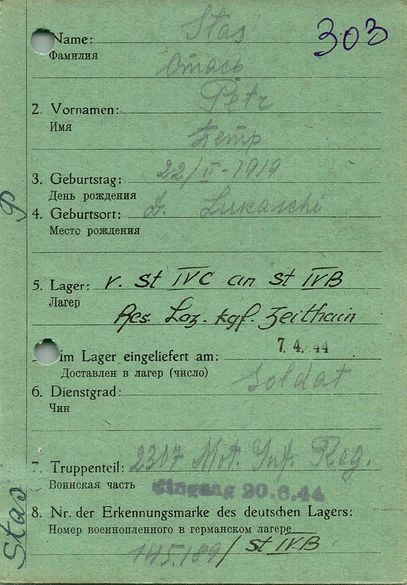 303
Name: Stas
Фамилия Стась
2. Vornamen: Petr
Имя Петр
3. Geburtstag: 22/II-1919
День рождения
4. Geburtsort: D. Lukaschi
Место рождения
5. Lager: v. St IVC an St IVB
Лагер Res. Laz. kgf. Zeithain
im Lager eingeliefert am: 7. 4. 44
Доставлен в лагер (число)
6. Dienstgrad: Soldat
Чин
7. Truppenteil: 2317 Mot. Inf. Reg.
Воинская часть Eingang 20.6.44
8. Nr. der Erkennungsmarke des deutschen Lagers:
Номер военнопленного в германском лагере
145189/St IVB
Stas